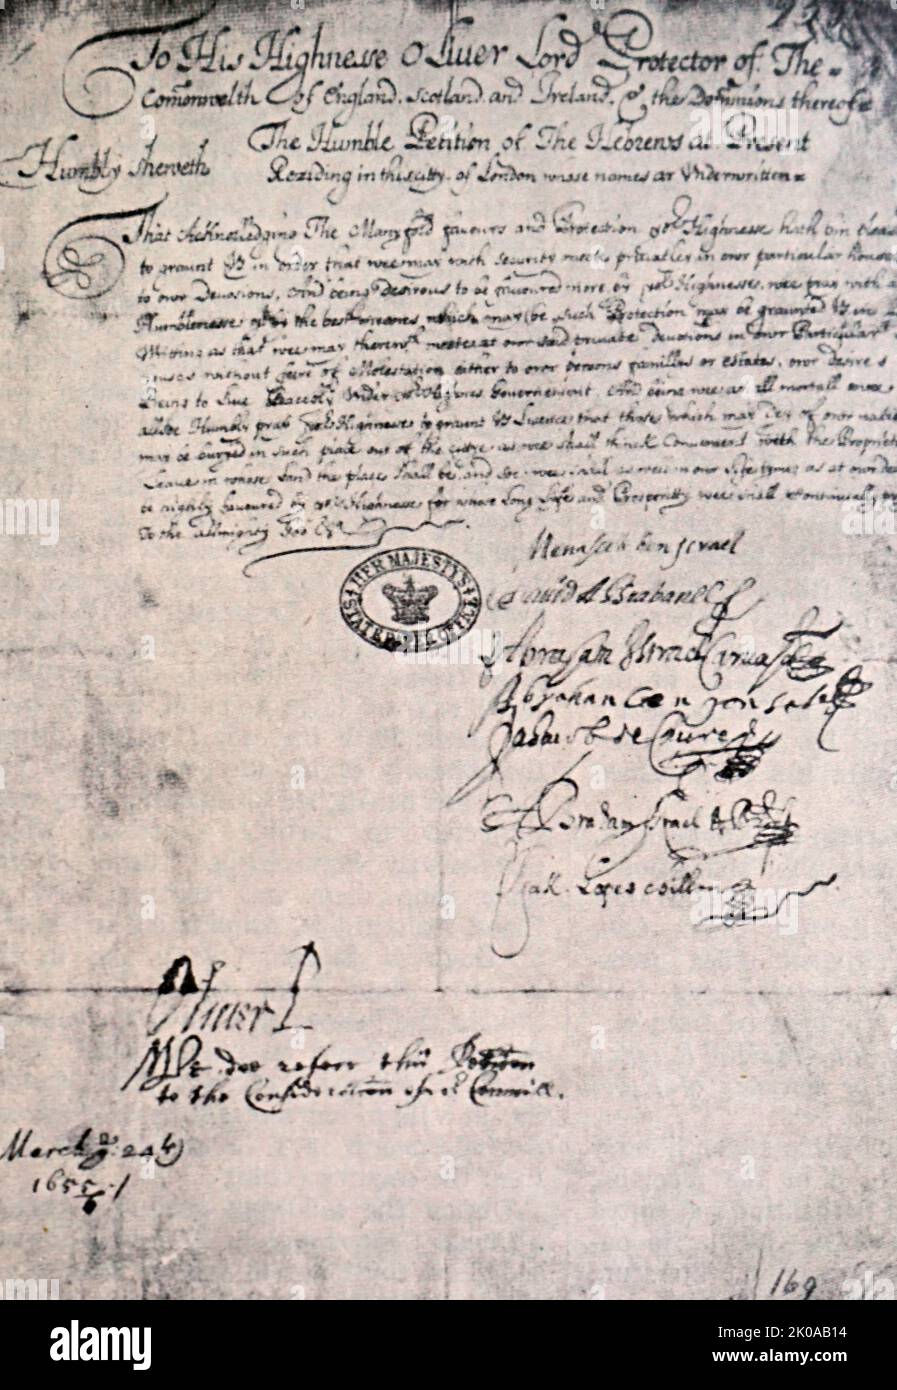 To His Highnesse Oliver Lord Protector of The
Comonwelth of England, Scotland and Ireland, & the Dominions thereof
The Humble Petition of The Hebrews at Present
Humbly sheweth
Reziding in this citty of London whose names ar Underwritten
That Acknowledging The Manyfold favours and Protection yor Highnesse hath bin
to graunt Us in order that wee may with security meete privatley in owr particular houses
to owr Devosions, And being Desirous to be favoured more by yor Highnesse, wee pray with
Humblenesse by the best meanes which may be Such Protection may be graunted Us in
Writing as that wee may therewth meete at owr said private devotions in owr Particular
houses without feere of Molestation either to owr persons famillys or estates, owr desire s
Being to Live Peacebly Under yor Highnes Governement, And being wee ar all mortall wee
allsoe Humbly pray yor Highnesse to graunt Us Lisence that those which may dey of owr nation
may be buryed in such place out of the cittye as wee shall thinck Convenient with the Proprietors
Leave in whose Land the place shall be, and soe wee shall as well in owr Lifetyme, as at owr
be highly favoured by yor Highnesse for whose Long Life and Prosperitty wee shall Continually pray
To the allmighty God
Menasseh ben Israel
David Abrabanel
HER MAJESTY'S STATE PAPER OFFICE
Abraham Israel Carvajal
Abraham Coen Gonsales
Jahacob de Caceres
Abraham Israel de Brito
Isak Lopes Chillon
Oliver P
Wee doe referr this Petition
to the Consideracon of ye Councill.
March ye 24th
1655/6
169
alamy
Image ID: 2K0AB14
www.alamy.com